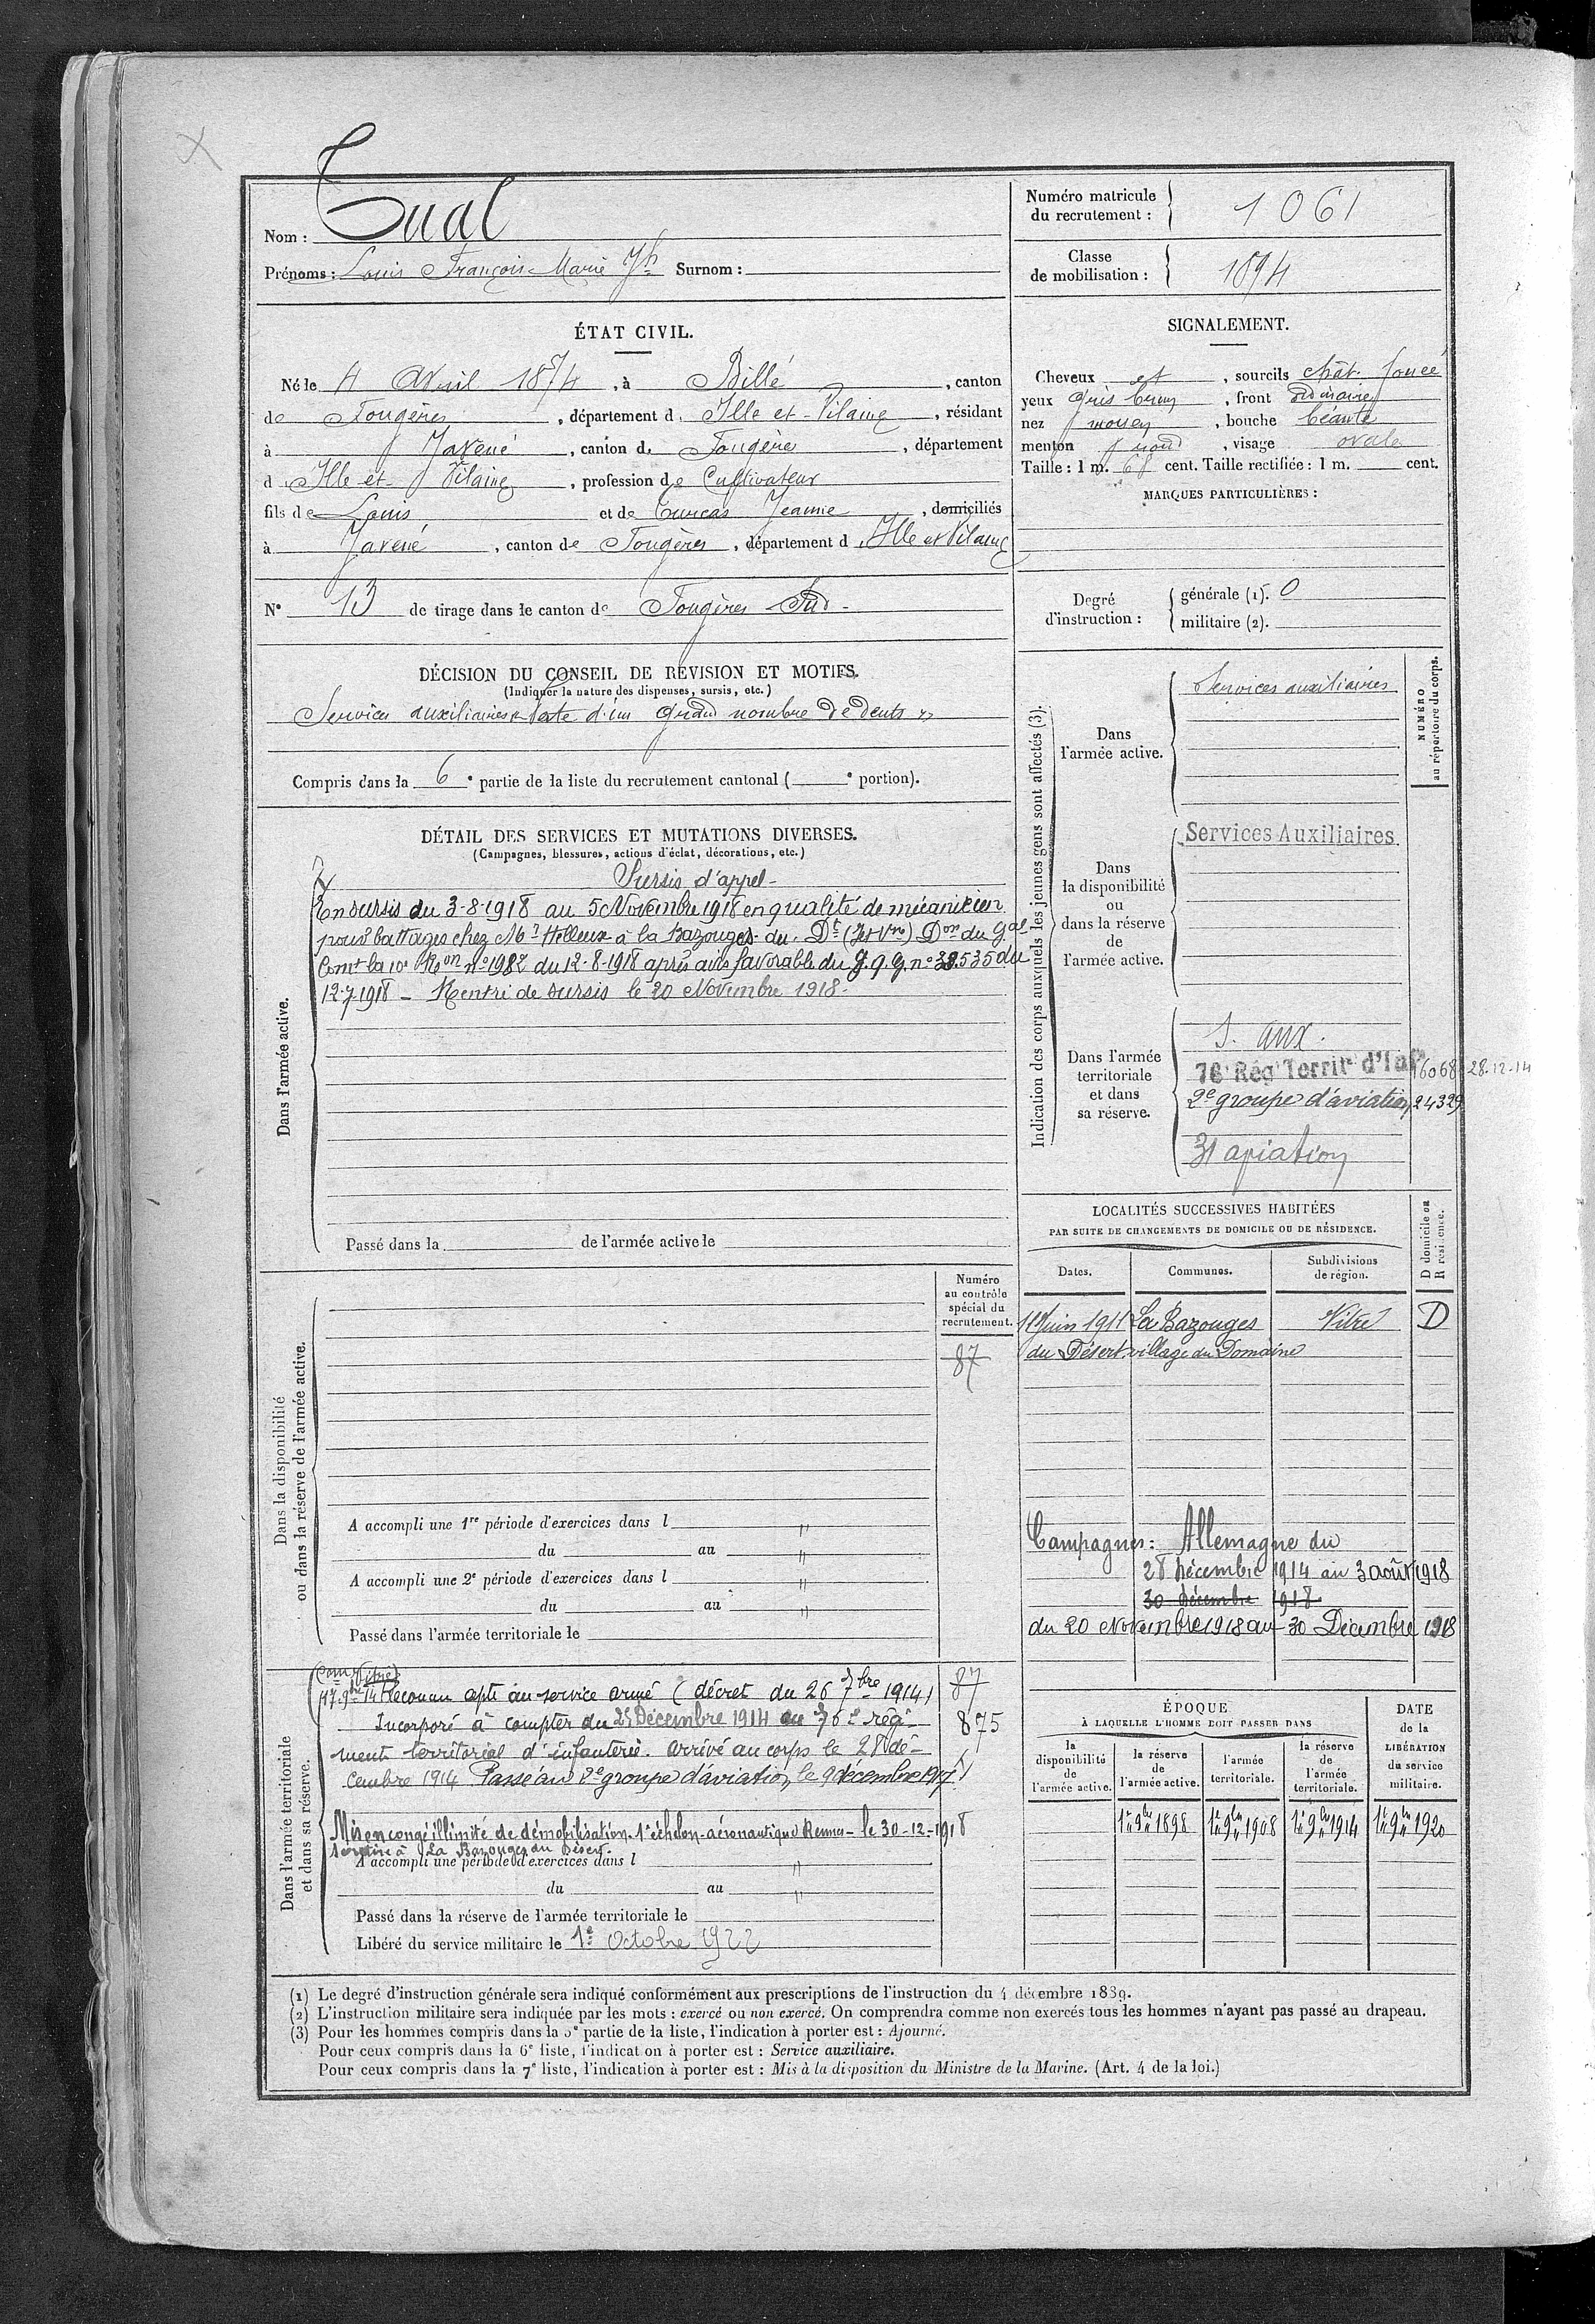 Nom : Tual
Prénoms : Louis François-Marie Jh Surnom :
Numéro matricule du recrutement : 1061
Classe de mobilisation : 1894
ÉTAT CIVIL.
Né le 4 Avril 1874, à Billé, canton
de Fougères, département d. Ille et-Vilaine, résidant
à Javené, canton d. Fougères, département
d Ille-et-Vilaine, profession de Cultivateur
fils de Louis et de Turcas Jeanne, domiciliés
à Javené, canton de Fougères, département d Ille et Vilaine
N° 13 de tirage dans le canton de Fougères Sud-
SIGNALEMENT.
Cheveux et, sourcils chât. foncé
yeux gris brun, front ordinaire
nez moyen, bouche béante
menton rond, visage ovale
Taille : 1 m. 68 cent. Taille rectifiée : 1 m. cent.
MARQUES PARTICULIÈRES :
Degré d'instruction :
générale (1). 0
militaire (2).
DÉCISION DU CONSEIL DE RÉVISION ET MOTIFS.
(Indiquer la nature des dispenses, sursis, etc.)
Services auxiliaires Perte d'un grand nombre de dents
Compris dans la 6e partie de la liste du recrutement cantonal ( e portion).
DÉTAIL DES SERVICES ET MUTATIONS DIVERSES.
(Campagnes, blessures, actions d'éclat, décorations, etc.)
Dans l'armée active.
Sursis d'appel-
En sursis du 3-8-1918 au 5 Novembre 1918 en qualité de mécanicien
pour battages chez Mr Helleux à la Bazouges-du-Dt (Iet Vne) Don du Gal
Comt la 10e Ron n° 1982 du 12-8-1918 après avis favorable du G.Q.G. n° 38.535 du
12-7-1918 - Rentré de sursis le 20 Novembre 1918-
Passé dans la de l'armée active le
Indication des corps auxquels les jeunes gens sont affectés (3).
NUMÉRO au répertoire du corps.
Dans l'armée active.
Services auxiliaires
Dans la disponibilité ou dans la réserve de l'armée active.
Services Auxiliaires
Dans l'armée territoriale et dans sa réserve.
S. aux.
76e Rég Territ d'Inf 16068 28.12.14
2e groupe d'aviation 24329
31 aviation
LOCALITÉS SUCCESSIVES HABITÉES
PAR SUITE DE CHANGEMENTS DE DOMICILE OU DE RÉSIDENCE.
Dates. Communes. Subdivisions de région. D domicile ou R résidence.
Juin 1911 La Bazouges Vitré D
du Désert village du Domaine
Campagnes : Allemagne du
28 Décembre 1914 au 3 août 1918
30 décembre 1918
du 20 Novembre 1918 au 30 Décembre 1918
Dans la disponibilité ou dans la réserve de l'armée active.
Numéro au contrôle spécial du recrutement.
87
A accompli une 1re période d'exercices dans l "
du au "
A accompli une 2e période d'exercices dans l "
du au "
Passé dans l'armée territoriale le
Dans l'armée territoriale et dans sa réserve.
(Com Vitré)
17 9bre 14 Reconnu apte au service armé (décret du 26 7bre 1914) 87
Incorporé à compter du 28 Décembre 1914 au 76e régi- 875
ment territorial d'infanterie. arrivé au corps le 28 dé-
cembre 1914 Passé au 2e groupe d'aviation, le 9 décembre 1917
Mis en congé illimité de démobilisation-1e échelon-aéronautique Rennes-le 30-12-1918
se retire à La Bazouges du Désert.
A accompli une période d'exercices dans l "
du au "
Passé dans la réserve de l'armée territoriale le
Libéré du service militaire le 1er Octobre 1922
ÉPOQUE
À LAQUELLE L'HOMME DOIT PASSER DANS
la disponibilité de l'armée active. la réserve de l'armée active. l'armée territoriale. la réserve de l'armée territoriale. DATE de la LIBÉRATION du service militaire.
1er 9bre 1898 1er 9bre 1908 1er 9bre 1914 1er 9bre 1920
(1) Le degré d'instruction générale sera indiqué conformément aux prescriptions de l'instruction du 4 décembre 1889.
(2) L'instruction militaire sera indiquée par les mots : exercé ou non exercé. On comprendra comme non exercés tous les hommes n'ayant pas passé au drapeau.
(3) Pour les hommes compris dans la 5e partie de la liste, l'indication à porter est : Ajourné.
Pour ceux compris dans la 6e liste, l'indication à porter est : Service auxiliaire.
Pour ceux compris dans la 7e liste, l'indication à porter est : Mis à la disposition du Ministre de la Marine. (Art. 4 de la loi.)